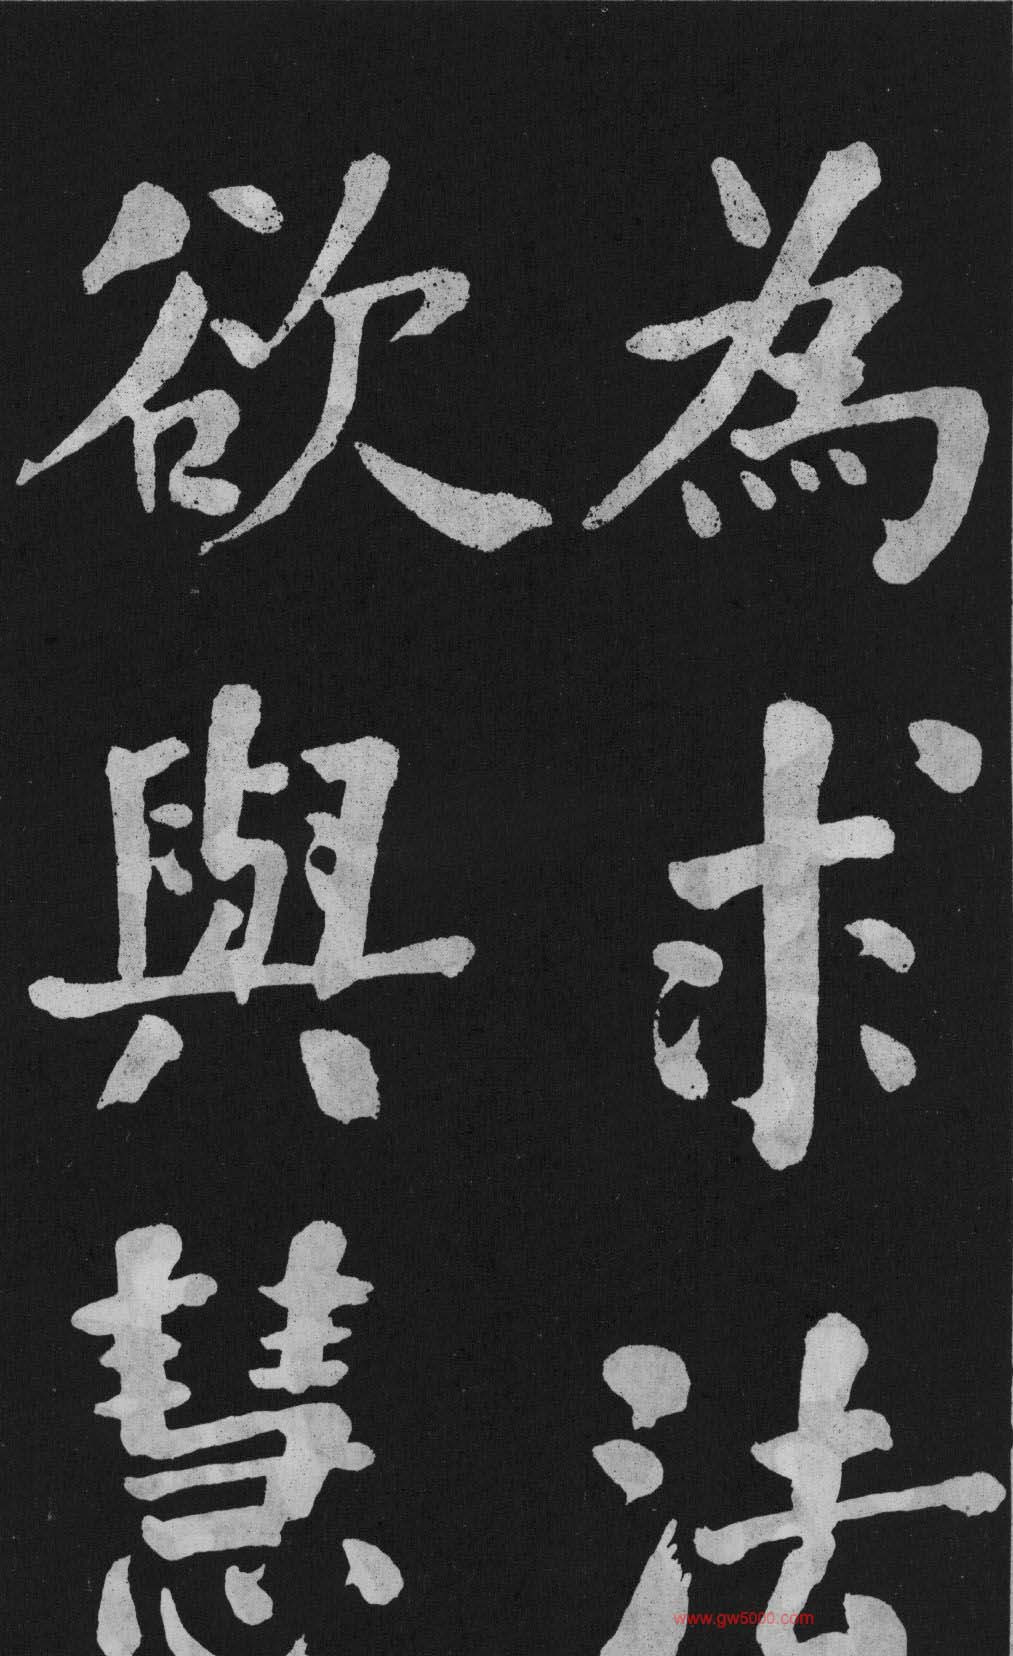 為求法
欲與慧
www.gw5000.com